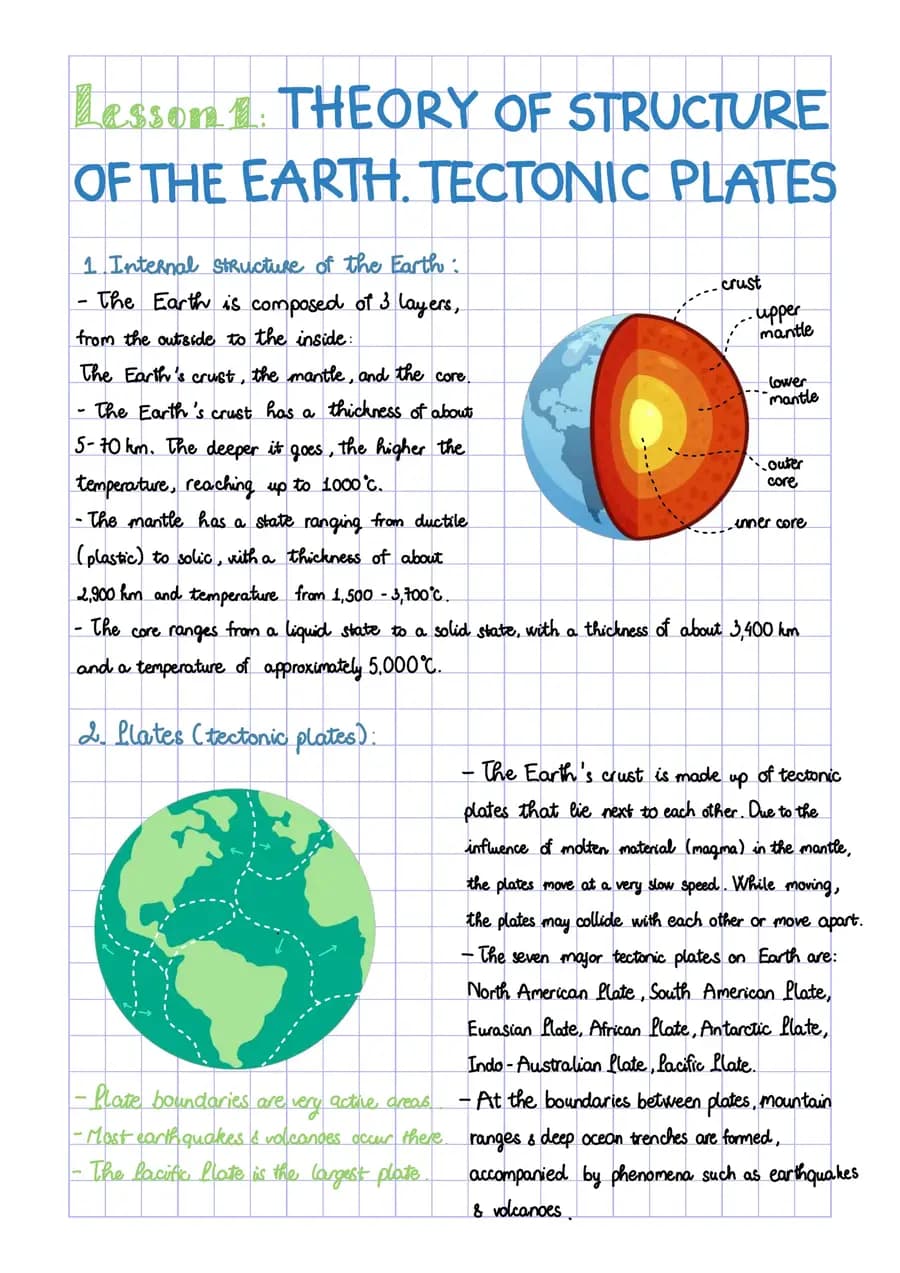 Lesson 1: THEORY OF STRUCTURE
OF THE EARTH. TECTONIC PLATES
1. Internal structure of the Earth:
- The Earth is composed of 3 layers,
from the outside to the inside:
The Earth's crust, the mantle, and the core.
- The Earth's crust has a thickness of about
5-70 km. The deeper it goes, the higher the
temperature, reaching up to 1000°C.
- The mantle has a state ranging from ductile
(plastic) to solic, with a thickness of about
2,900 km and temperature from 1,500 - 3,700°C.
- The core ranges from a liquid state to a solid state, with a thickness of about 3,400 km
and a temperature of approximately 5,000°C.
crust
upper
mantle
lower
mantle
outer
core
inner core
2. Plates (tectonic plates):
- Plate boundaries are very active areas.
- Most earthquakes & volcanoes occur there.
- The Pacific Plate is the largest plate.
- The Earth's crust is made up of tectonic
plates that lie next to each other. Due to the
influence of molten material (magma) in the mantle,
the plates move at a very slow speed. While moving,
the plates may collide with each other or move apart.
- The seven major tectonic plates on Earth are:
North American Plate, South American Plate,
Eurasian Plate, African Plate, Antarctic Plate,
Indo-Australian Plate, Pacific Plate.
- At the boundaries between plates, mountain
ranges & deep ocean trenches are formed,
accompanied by phenomena such as earthquakes
& volcanoes.